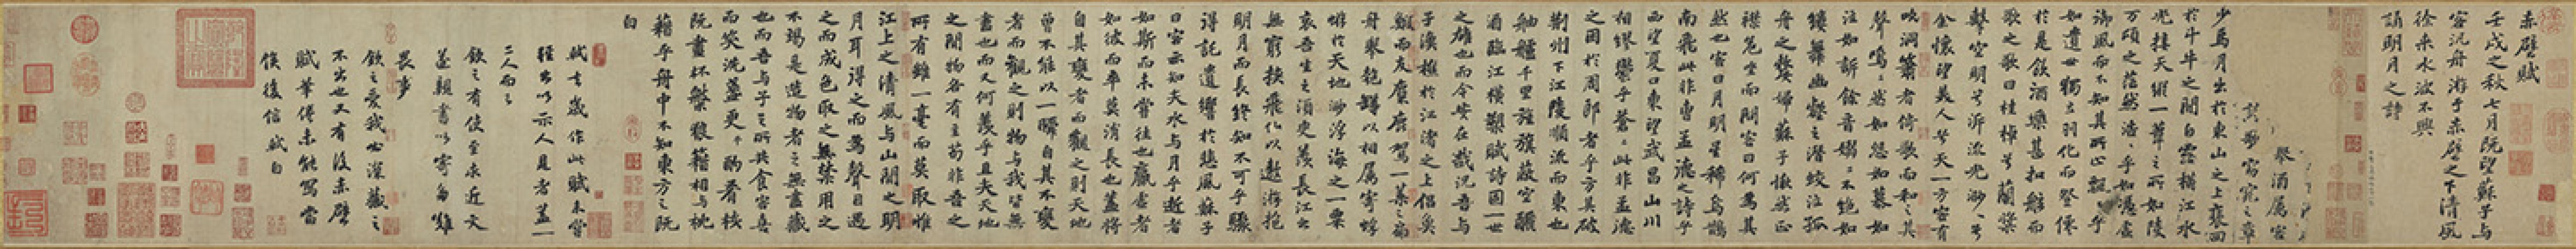 赤壁賦
壬戌之秋七月既望蘇子與
客汎舟游于赤壁之下清風
徐來水波不興
誦明月之詩
舉酒屬客
歌窈窕之章
少焉月出於東山之上裴回
於斗牛之間白露橫江水
光接天縱一葦之所如陵
万頃之茫然浩〻乎如馮虛
御風而不知其所止飄〻乎
如遺世獨立羽化而登僊
於是飲酒樂甚扣舷而
歌之歌曰桂棹兮蘭槳
擊空明兮泝流光渺〻兮
余懷望美人兮天一方客有
吹洞簫者倚歌而和之其
聲嗚〻然如怨如慕如
泣如訴餘音嫋〻不絕如
縷舞幽壑之潛蛟泣孤
舟之嫠婦蘇子愀然正
襟危坐而問客曰何爲其
然也客曰月明星稀烏鵲
南飛此非曹孟德之詩乎
西望夏口東望武昌山川
相繆鬱乎蒼〻此非孟德
之困於周郎者乎方其破
荊州下江陵順流而東也
舳艫千里旌旗蔽空釃
酒臨江橫槊賦詩固一世
之雄也而今安在哉況吾與
子漁樵於江渚之上侶魚
鰕而友麋鹿駕一葉之扁
舟舉匏樽以相屬寄蜉
蝣於天地渺浮海之一粟
哀吾生之須臾羨長江之
無窮挾飛仙以遨游抱
明月而長終知不可乎驟
得託遺響於悲風蘇子
曰客亦知夫水與月乎逝者
如斯而未嘗往也贏虛者
如彼而卒莫消長也蓋將
自其變者而觀之則天地
曾不能以一瞬自其不變
者而觀之則物與我皆無
盡也而又何羨乎且夫天地
之間物各有主苟非吾之
所有雖一毫而莫取惟
江上之清風與山間之明
月耳得之而爲聲目遇
之而成色取之無禁用之
不竭是造物者之無盡藏
也而吾與子之所共食客喜
而笑洗盞更酌肴核
既盡杯盤狼籍相與枕
藉乎舟中不知東方之既
白
軾去歲作此賦未嘗
輕出以示人見者蓋一
二人而已
欽之有使至求近文
遂親書以寄多難
畏事
欽之愛我必深藏之
不出也又有後赤壁
賦筆倦未能寫當
俟後信軾白